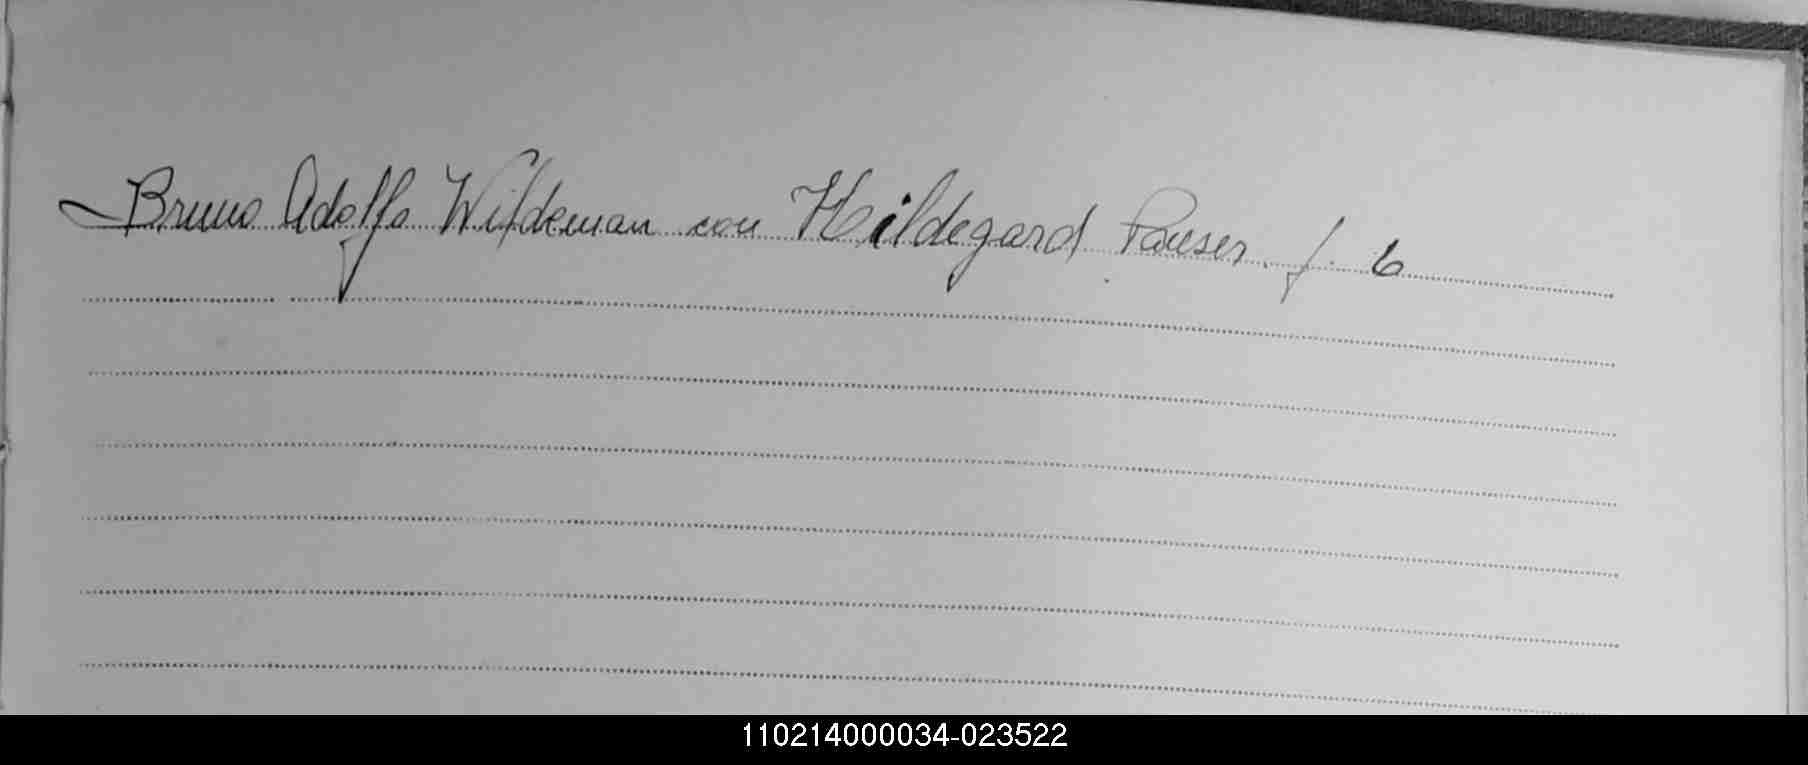 Bruno Adolfo Wildeman con Hildegard Pauser. f. 6
110214000034-023522